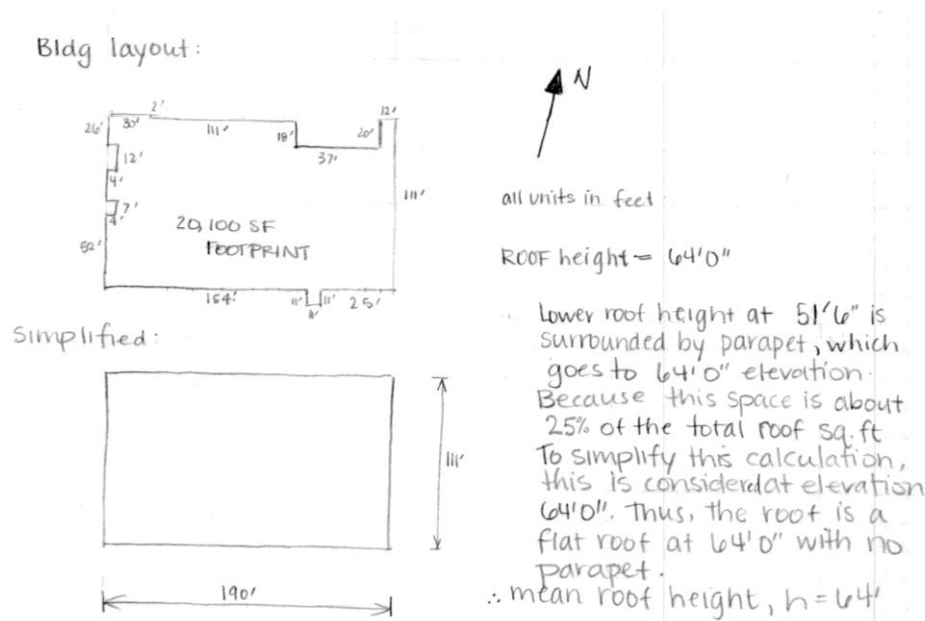 Bldg layout:
N
2'
12'
26'
30'
111'
18'
20'
12'
37'
4'
111'
7'
4'
20,100 SF
FOOTPRINT
52'
164'
11'
11'
25'
11'
all units in feet
ROOF height = 64'0"
Lower roof height at 51'6" is
surrounded by parapet, which
goes to 64'0" elevation.
Because this space is about
25% of the total roof sq.ft
To simplify this calculation,
this is considerdat elevation
64'0". Thus, the roof is a
flat roof at 64'0" with no
parapet.
∴ mean roof height, h = 64'
Simplified:
111'
190'